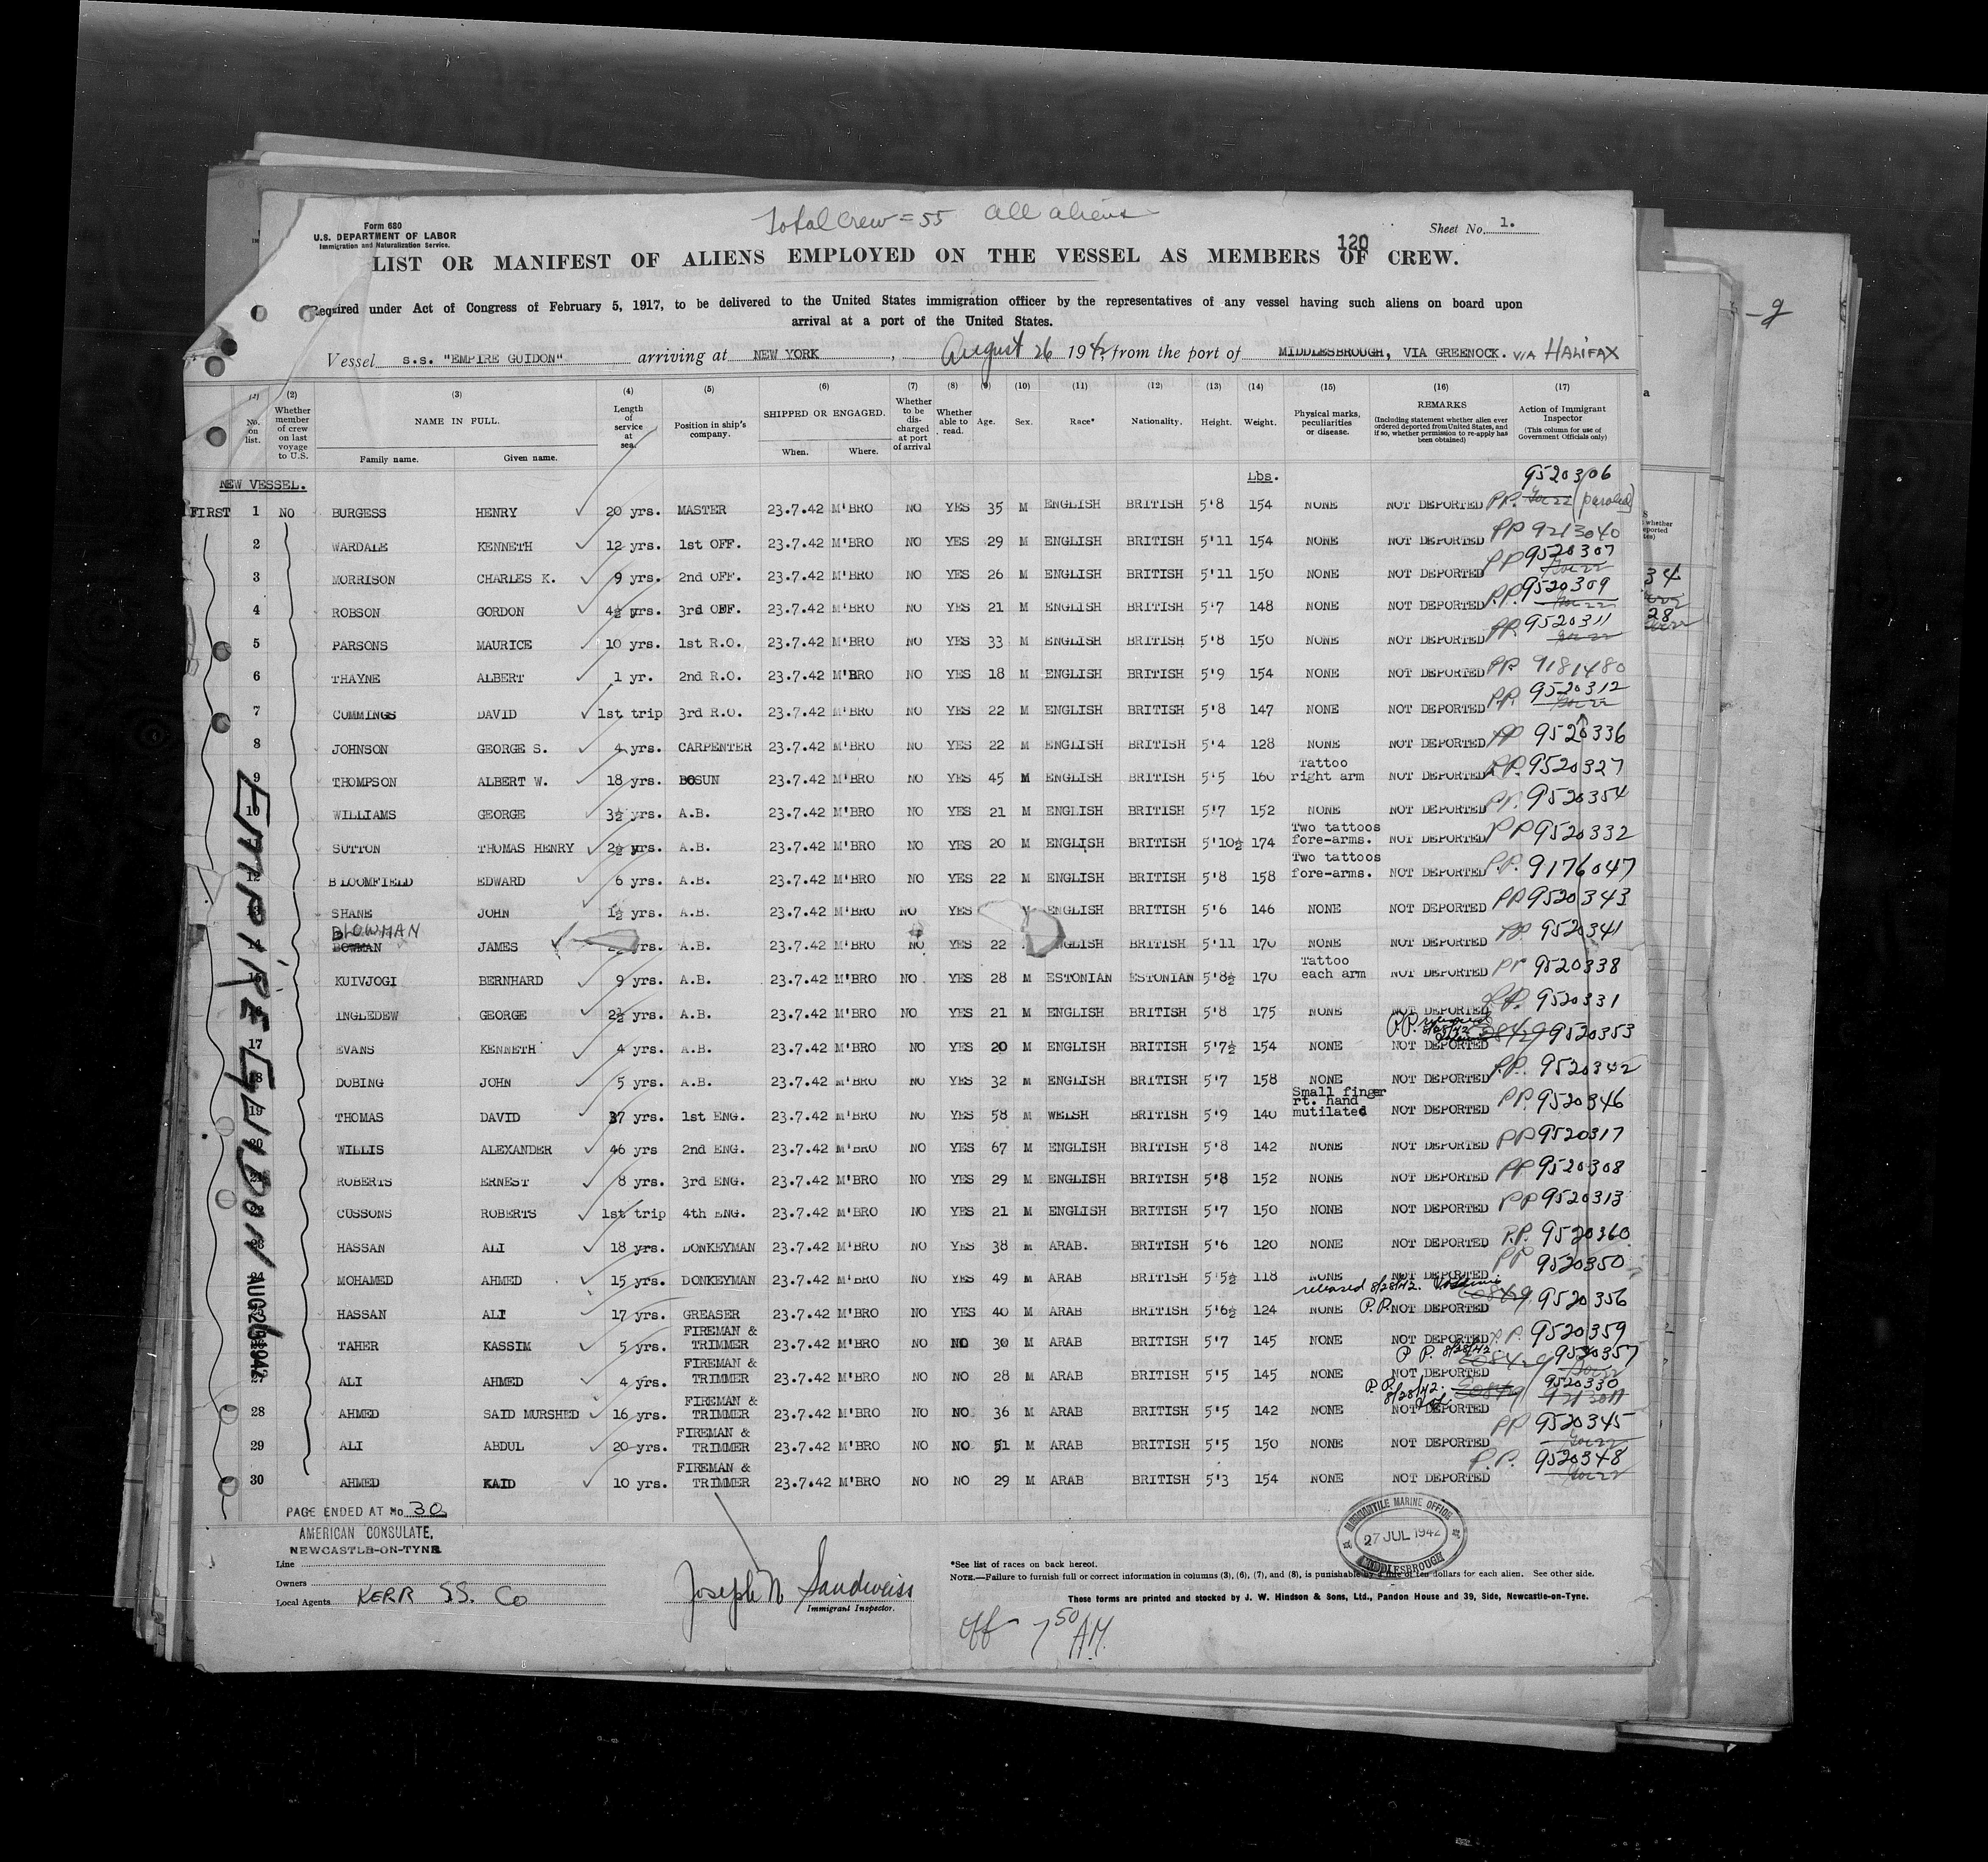 Total crew = 55 all aliens
Form 680
U.S. DEPARTMENT OF LABOR
Immigration and Naturalization Service.
Sheet No. 1.
120
LIST OR MANIFEST OF ALIENS EMPLOYED ON THE VESSEL AS MEMBERS OF CREW.
Required under Act of Congress of February 5, 1917, to be delivered to the United States immigration officer by the representatives of any vessel having such aliens on board upon
arrival at a port of the United States.
Vessel s.s. "EMPIRE GUIDON" arriving at NEW YORK, August 26 1942 from the port of MIDDLESBROUGH, VIA GREENOCK. VIA HALIFAX
(1) No. on list. (2) Whether member of crew on last voyage to U.S. (3) NAME IN FULL. Family name. Given name. (4) Length of service at sea. (5) Position in ship's company. (6) SHIPPED OR ENGAGED. When. Where. (7) Whether to be discharged at port of arrival (8) Whether able to read. (9) Age. (10) Sex. (11) Race* (12) Nationality. (13) Height. (14) Weight. (15) Physical marks, peculiarities or disease. (16) REMARKS (Including statement whether alien ever ordered deported from United States, and if so, whether permission to re-apply has been obtained) (17) Action of Immigrant Inspector (This column for use of Government Officials only)
NEW VESSEL. Lbs. 9520306
FIRST 1 NO BURGESS HENRY 20 yrs. MASTER 23.7.42 M'BRO NO YES 35 M ENGLISH BRITISH 5'8 154 NONE NOT DEPORTED PP. (paroled)
2 WARDALE KENNETH 12 yrs. 1st OFF. 23.7.42 M'BRO NO YES 29 M ENGLISH BRITISH 5'11 154 NONE NOT DEPORTED PP 9213040
3 MORRISON CHARLES K. 9 yrs. 2nd OFF. 23.7.42 M'BRO NO YES 26 M ENGLISH BRITISH 5'11 150 NONE NOT DEPORTED PP 9520307
4 ROBSON GORDON 4½ yrs. 3rd OFF. 23.7.42 M'BRO NO YES 21 M ENGLISH BRITISH 5'7 148 NONE NOT DEPORTED P.P. 9520309
5 PARSONS MAURICE 10 yrs. 1st R.O. 23.7.42 M'BRO NO YES 33 M ENGLISH BRITISH 5'8 150 NONE NOT DEPORTED PP. 9520311
6 THAYNE ALBERT 1 yr. 2nd R.O. 23.7.42 M'BRO NO YES 18 M ENGLISH BRITISH 5'9 154 NONE NOT DEPORTED PP. 9181480
7 CUMMINGS DAVID 1st trip 3rd R.O. 23.7.42 M'BRO NO YES 22 M ENGLISH BRITISH 5'8 147 NONE NOT DEPORTED PP. 9520312
8 JOHNSON GEORGE S. 4 yrs. CARPENTER 23.7.42 M'BRO NO YES 22 M ENGLISH BRITISH 5'4 128 NONE NOT DEPORTED PP 9520336
9 THOMPSON ALBERT W. 18 yrs. BOSUN 23.7.42 M'BRO NO YES 45 M ENGLISH BRITISH 5'5 160 Tattoo right arm NOT DEPORTED PP. 9520327
10 WILLIAMS GEORGE 3½ yrs. A.B. 23.7.42 M'BRO NO YES 21 M ENGLISH BRITISH 5'7 152 NONE NOT DEPORTED PP. 9520354
SUTTON THOMAS HENRY 2½ yrs. A.B. 23.7.42 M'BRO NO YES 20 M ENGLISH BRITISH 5'10½ 174 Two tattoos fore-arms. NOT DEPORTED PP 9520332
12 BLOOMFIELD EDWARD 6 yrs. A.B. 23.7.42 M'BRO NO YES 22 M ENGLISH BRITISH 5'8 158 Two tattoos fore-arms. NOT DEPORTED P.P. 9176047
SHANE JOHN 1½ yrs. A.B. 23.7.42 M'BRO NO YES ENGLISH BRITISH 5'6 146 NONE NOT DEPORTED PP 9520343
BLOWMAN
BOWMAN JAMES yrs. A.B. 23.7.42 M'BRO NO YES 22 ENGLISH BRITISH 5'11 170 NONE NOT DEPORTED PP 9520341
15 KUIVJOGI BERNHARD 9 yrs. A.B. 23.7.42 M'BRO NO YES 28 M ESTONIAN ESTONIAN 5'8½ 170 Tattoo each arm NOT DEPORTED PP 9520338
16 INGLEDEW GEORGE 2½ yrs. A.B. 23.7.42 M'BRO NO YES 21 M ENGLISH BRITISH 5'8 175 NONE NOT DEPORTED P.P. 9520331
17 EVANS KENNETH 4 yrs. A.B. 23.7.42 M'BRO NO YES 20 M ENGLISH BRITISH 5'7½ 154 NONE NOT DEPORTED P.P. released 8/28/42 9520353
18 DOBING JOHN 5 yrs. A.B. 23.7.42 M'BRO NO YES 32 M ENGLISH BRITISH 5'7 158 NONE NOT DEPORTED P.P. 9520342
19 THOMAS DAVID 37 yrs. 1st ENG. 23.7.42 M'BRO NO YES 58 M WELSH BRITISH 5'9 140 Small finger rt. hand mutilated NOT DEPORTED PP. 9520346
20 WILLIS ALEXANDER 46 yrs 2nd ENG. 23.7.42 M'BRO NO YES 67 M ENGLISH BRITISH 5'8 142 NONE NOT DEPORTED PP 9520317
ROBERTS ERNEST 8 yrs. 3rd ENG. 23.7.42 M'BRO NO YES 29 M ENGLISH BRITISH 5'8 152 NONE NOT DEPORTED PP 9520308
CUSSONS ROBERTS 1st trip 4th ENG. 23.7.42 M'BRO NO YES 21 M ENGLISH BRITISH 5'7 150 NONE NOT DEPORTED PP 9520313
HASSAN ALI 18 yrs. DONKEYMAN 23.7.42 M'BRO NO YES 38 M ARAB. BRITISH 5'6 120 NONE NOT DEPORTED P.P. 9520360
24 MOHAMED AHMED 15 yrs. DONKEYMAN 23.7.42 M'BRO NO YES 49 M ARAB BRITISH 5'5½ 118 NONE NOT DEPORTED PP 9520350
HASSAN ALI 17 yrs. GREASER 23.7.42 M'BRO NO YES 40 M ARAB BRITISH 5'6½ 124 NONE released 8/28/42. P.P. NOT DEPORTED 9520356
TAHER KASSIM 5 yrs. FIREMAN & TRIMMER 23.7.42 M'BRO NO NO 30 M ARAB BRITISH 5'7 145 NONE NOT DEPORTED P.P. 9520359
27 ALI AHMED 4 yrs. FIREMAN & TRIMMER 23.7.42 M'BRO NO NO 28 M ARAB BRITISH 5'5 145 NONE NOT DEPORTED P P. 8/28/42. 9520357
28 AHMED SAID MURSHED 16 yrs. FIREMAN & TRIMMER 23.7.42 M'BRO NO NO 36 M ARAB BRITISH 5'5 142 NONE NOT DEPORTED P.P. 8/28/42. 9520330
29 ALI ABDUL 20 yrs. FIREMAN & TRIMMER 23.7.42 M'BRO NO NO 51 M ARAB BRITISH 5'5 150 NONE NOT DEPORTED PP 9520345
30 AHMED KAID 10 yrs. FIREMAN & TRIMMER 23.7.42 M'BRO NO NO 29 M ARAB BRITISH 5'3 154 NONE NOT DEPORTED P.P. 9520348
EMPIRE GUIDON AUG 26 1942
PAGE ENDED AT No 30
AMERICAN CONSULATE,
NEWCASTLE-ON-TYNE
Line
Owners
Local Agents KERR SS. Co
Joseph N Sandweiss
Immigrant Inspector.
MERCANTILE MARINE OFFICE
27 JUL 1942
MIDDLESBROUGH
*See list of races on back hereof.
NOTE.—Failure to furnish full or correct information in columns (3), (6), (7), and (8), is punishable by a fine of ten dollars for each alien. See other side.
These forms are printed and stocked by J. W. Hindson & Sons, Ltd., Pandon House and 39, Side, Newcastle-on-Tyne.
off 7 50 A.M.
34
28